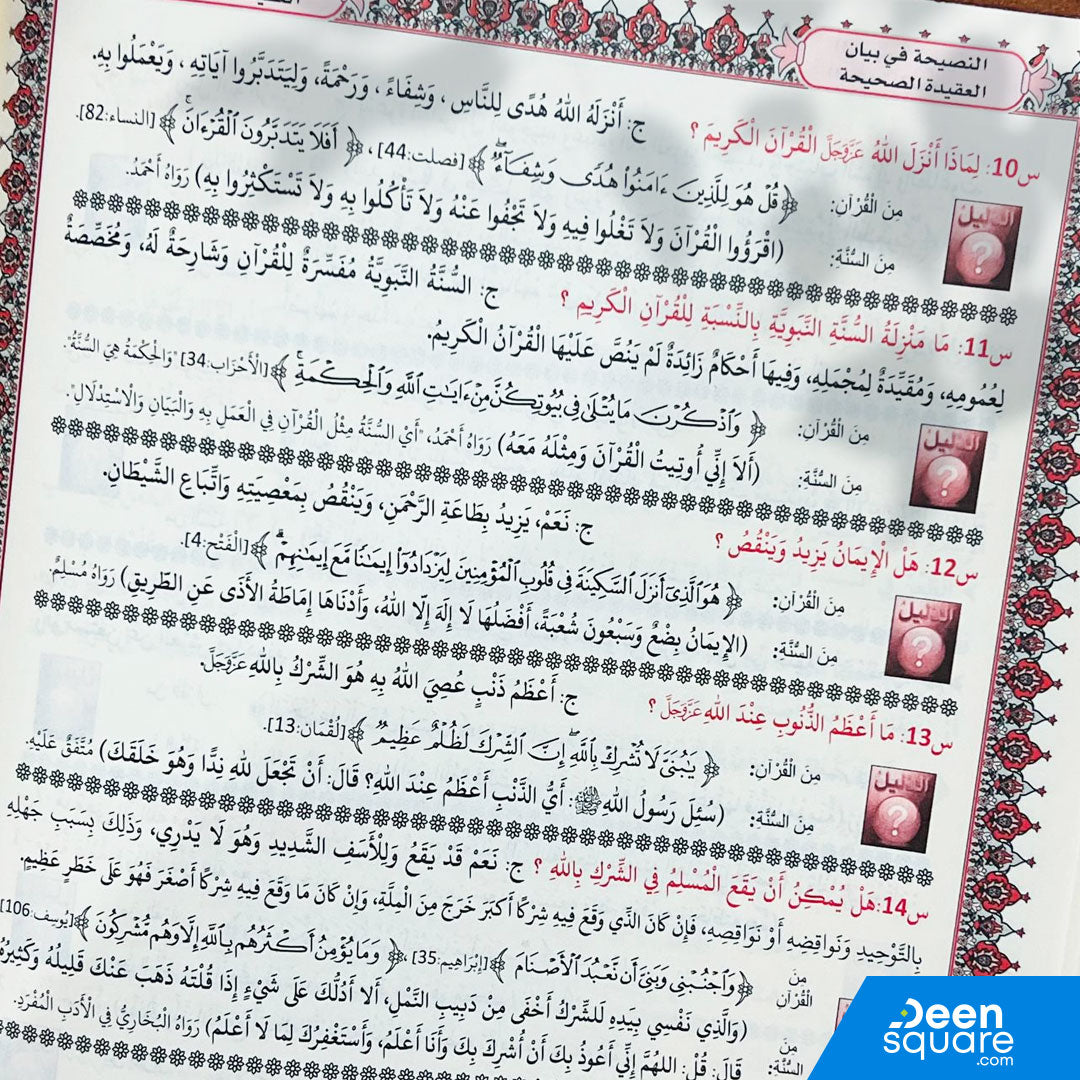 النصيحة في بيان
العقيدة الصحيحة
س10: لِمَاذَا أَنْزَلَ اللهُ عَزَّوَجَلَّ الْقُرْآنَ الْكَرِيمَ ؟ ج: أَنْزَلَهُ اللهُ هُدًى لِلنَّاسِ ، وَشِفَاءً ، وَرَحْمَةً، وَلِيَتَدَبَّرُوا آيَاتِهِ ، وَيَعْمَلُوا بِهِ.
الدليل
مِنَ الْقُرْآنِ: ﴿ قُلْ هُوَ لِلَّذِينَ ءَامَنُوا۟ هُدًى وَشِفَآءٌ ﴾ [فصلت:44] ، ﴿ أَفَلَا يَتَدَبَّرُونَ الْقُرْءَانَ ﴾ [النساء:82].
مِنَ السُّنَّةِ: (اقْرَؤُوا الْقُرْآنَ وَلاَ تَغْلُوا فِيهِ وَلاَ تَجْفُوا عَنْهُ وَلاَ تَأْكُلُوا بِهِ وَلاَ تَسْتَكْثِرُوا بِهِ) رَوَاهُ أَحْمَدُ.
س11: مَا مَنْزِلَةُ السُّنَّةِ النَّبَوِيَّةِ بِالنِّسْبَةِ لِلْقُرْآنِ الْكَرِيمِ ؟ ج: السُّنَّةُ النَّبَوِيَّةُ مُفَسِّرَةٌ لِلْقُرْآنِ وَشَارِحَةٌ لَهُ، وَمُخَصِّصَةٌ
لِعُمُومِهِ، وَمُقَيِّدَةٌ لِمُجْمَلِهِ، وَفِيهَا أَحْكَامٌ زَائِدَةٌ لَمْ يَنُصَّ عَلَيْهَا الْقُرْآنُ الْكَرِيمُ.
الدليل
مِنَ الْقُرْآنِ: ﴿ وَاذْكُرْنَ مَا يُتْلَىٰ فِى بُيُوتِكُنَّ مِنْ ءَايَٰتِ اللَّهِ وَالْحِكْمَةِ ﴾ [الْأَحْزَاب:34] "وَالْحِكْمَةُ هِيَ السُّنَّةُ".
مِنَ السُّنَّةِ: (أَلاَ إِنِّي أُوتِيتُ الْقُرْآنَ وَمِثْلَهُ مَعَهُ) رَوَاهُ أَحْمَدُ، "أَيْ السُّنَّةُ مِثْلُ الْقُرْآنِ فِي الْعَمَلِ بِهِ وَالْبَيَانِ وَالْاسْتِدْلَالِ".
س12: هَلْ الْإِيمَانُ يَزِيدُ وَيَنْقُصُ ؟ ج: نَعَمْ، يَزِيدُ بِطَاعَةِ الرَّحْمَنِ، وَيَنْقُصُ بِمَعْصِيَتِهِ وَاتِّبَاعِ الشَّيْطَانِ.
الدليل
مِنَ الْقُرْآنِ: ﴿ هُوَ الَّذِىٓ أَنزَلَ السَّكِينَةَ فِى قُلُوبِ الْمُؤْمِنِينَ لِيَزْدَادُوٓا۟ إِيمَٰنًا مَّعَ إِيمَٰنِهِمْ ﴾ [الْفَتْح:4].
مِنَ السُّنَّةِ: (الإِيمَانُ بِضْعٌ وَسَبْعُونَ شُعْبَةً، أَفْضَلُهَا لَا إِلَهَ إِلَّا اللهُ، وَأَدْنَاهَا إِمَاطَةُ الأَذَى عَنِ الطَّرِيقِ) رَوَاهُ مُسْلِمٌ.
س13: مَا أَعْظَمُ الذُّنُوبِ عِنْدَ اللهِ عَزَّوَجَلَّ ؟ ج: أَعْظَمُ ذَنْبٍ عُصِيَ اللهُ بِهِ هُوَ الشِّرْكُ بِاللهِ عَزَّوَجَلَّ.
الدليل
مِنَ الْقُرْآنِ: ﴿ يَٰبُنَىَّ لَا تُشْرِكْ بِاللَّهِ إِنَّ الشِّرْكَ لَظُلْمٌ عَظِيمٌ ﴾ [لُقْمَان:13].
مِنَ السُّنَّةِ: (سُئِلَ رَسُولُ اللهِ ﷺ: أَيُّ الذَّنْبِ أَعْظَمُ عِنْدَ اللهِ؟ قَالَ: أَنْ تَجْعَلَ لِلهِ نِدًّا وَهُوَ خَلَقَكَ) مُتَّفَقٌ عَلَيْهِ.
س14:هَلْ يُمْكِنُ أَنْ يَقَعَ الْمُسْلِمُ فِي الشِّرْكِ بِاللهِ ؟ ج: نَعَمْ قَدْ يَقَعُ وَلِلْأَسَفِ الشَّدِيدِ وَهُوَ لَا يَدْرِي، وَذَلِكَ بِسَبَبِ جَهْلِهِ
بِالتَّوْحِيدِ وَنَوَاقِضِهِ أَوْ نَوَاقِصِهِ، فَإِنْ كَانَ الذِّي وَقَعَ فِيهِ شِرْكًا أَكْبَرَ خَرَجَ مِنَ الْمِلَّةِ، وَإِنْ كَانَ مَا وَقَعَ فِيهِ شِرْكًا أَصْغَرَ فَهُوَ عَلَى خَطَرٍ عَظِيمٍ.
مِنَ الْقُرْآنِ: ﴿ وَاجْنُبْنِى وَبَنِىَّ أَن نَّعْبُدَ الْأَصْنَامَ ﴾ [إِبْرَاهِيم:35]، ﴿ وَمَا يُؤْمِنُ أَكْثَرُهُم بِاللَّهِ إِلَّا وَهُم مُّشْرِكُونَ ﴾ [يُوسف:106]
مِنَ السُّنَّةِ: (وَالَّذِي نَفْسِي بِيَدِهِ لَلشِّرْكُ أَخْفَى مِنْ دَبِيبِ النَّمْلِ، أَلا أَدُلُّكَ عَلَى شَيْءٍ إِذَا قُلْتَهُ ذَهَبَ عَنْكَ قَلِيلُهُ وَكَثِيرُهُ
قَالَ: قُلْ: اللهُمَّ إِنِّي أَعُوذُ بِكَ أَنْ أُشْرِكَ بِكَ وَأَنَا أَعْلَمُ، وَأَسْتَغْفِرُكَ لِمَا لَا أَعْلَمُ) رَوَاهُ الْبُخَارِيُّ فِي الْأَدَبِ الْمُفْرَدِ.
Deen
square
.com